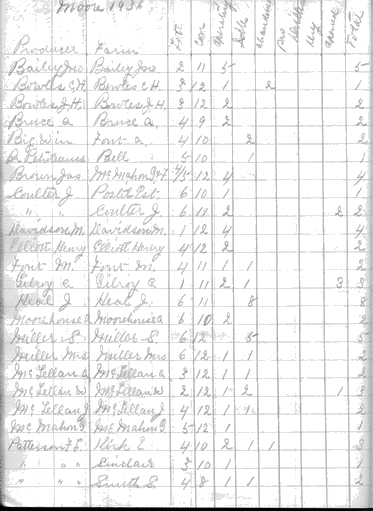 Moore 1936
Producer Farm Lot Con Idle Abandoned Pro Total
Bailey Jno Bailey Jno 2 11 5 5
Bowles C.H Bowles C.H 3 12 1 2
Bowles J.H. Bowles J.H. 3 12 2 2
Bruce A. Bruce A. 4 9 2 2
Big Win Font A. 4 10 2 2
Bell 5 10 1 1
Brown Jas McMahon 12 4 4
Coulter J Postil Est. 6 10 1 1
" " Coulter J. 6 11 2 2 2
Davidson M. Davidson M. 1 12 4 4
Elliott Henry Elliott Henry 4 12 2 2
Font M. Font M. 4 11 1 1 2
Gilroy A Gilroy A 1 11 2 1 3 3
Heal J Heal J. 6 11 8 8
Moorehouse A Moorehouse A 6 10 2 2
Miller S. Miller S. 6 12 5 5
Miller Mrs Miller Mrs 6 12 1 1 2
McLellan A McLellan A 3 12 1 1 2
McLellan W McLellan W 2 12 1 2 1 3
McLellan J McLellan J 4 12 1 1 2
McMahon J. McMahon J. 5 12 1 1
Patterson F.L. Kirk E 4 10 2 1 1 3
" " " Sinclair 5 10 1 1
" " " Smith S 4 8 1 1 2